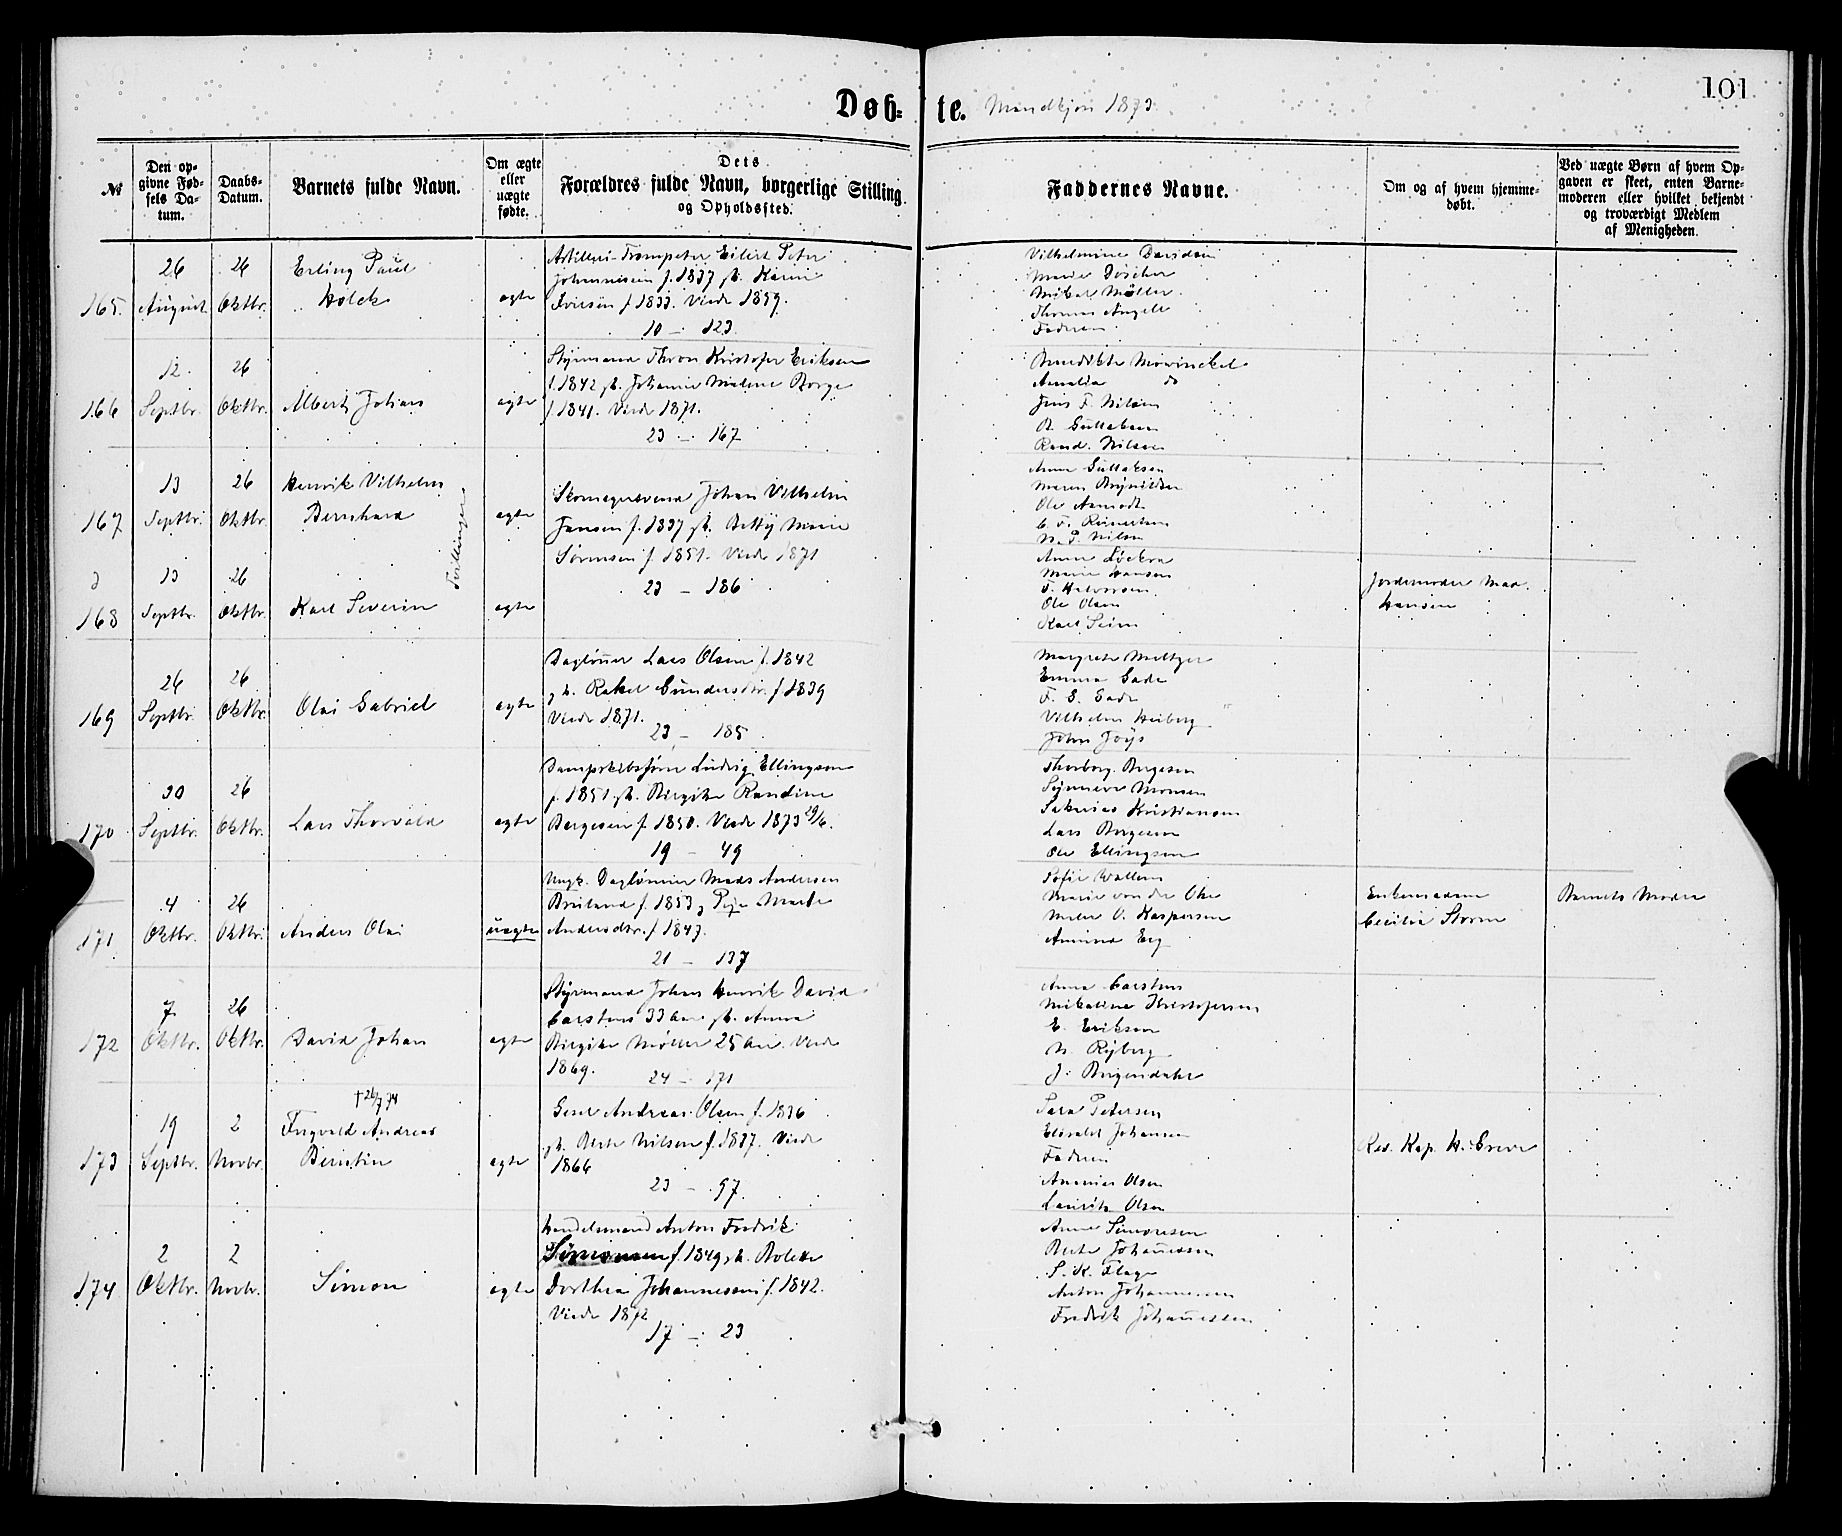 101
Døb- te. Mandkjøn 1873.
№
Den op-
givne Fød-
sels Da-
tum.
Daabs-
Datum.
Barnets fulde Navn.
Om ægte
eller
uægte
fødte.
Dets
Forældres fulde Navn, borgerlige Stilling
og Opholdssted.
Faddernes Navne.
Om og af hvem hjemme-
døbt.
Ved uægte Børn af hvem Op-
gaven er skeet, enten Barne-
moderen eller hvilket bekjendt
og troværdigt Medlem
af Menigheden.
165.
26
August
26
Oktbr.
Erling Paul
Holck
egte
Artilleri-Trompeter Eilert Peter
Johannesen f. 1837 gt. Karen
Iversen f 1833. Viede 1859.
10 - 123
Vilhelmine Davidsen
Mikal Møller
Thomas Angell
Faderen
166
12
Septbr.
26
Oktbr.
Albert Johan
egte
Styrmand Thron Kristofer Eriksen
f. 1842 gt. Johanne Malene Borge
f. 1841. Viede 1871.
23 - 167
Benedikte Mowinckel
Amalia do
Jens F. Nilsen
B. Gullaksen
Rand. Nilsen
167
13
Septbr.
26
Oktbr.
Henrik Vilhelm
Bernhard
Tvillinger
egte
Skomagersvend Johan Vilhelm
Jansen f. 1837 gt. Betty Marie
Sørensen f. 1851. Viede 1871
23 - 186
Anne Gullaksen
Maren Brynildsen
Ole Aamodt
N. P. Nilsen
168
13
Septbr.
26
Oktbr.
Karl Severin
egte
Anne
Marie Hansen
T. Halvorsen
Ole Olsen
Karl Seim
Jordemoder Mad.
Hansen
169
26
Septbr.
26
Oktbr.
Olai Gabriel
egte
Dagløner Lars Olsen f. 1842
gt. Rakel Gundersdtr. f 1839
Viede 1871.
23 - 185
Margrete Meltzer
Emma Gade
F. G. Gade
Vilhelm Heiberg
John Joys
170
30
Septbr.
26
Oktbr.
Lars Thorvald
egte
Dampskibsfører Ludvig Ellingsen
f. 1851 gt. Birgitte Randine
Børgesen f. 1850. Viede 1873 29/6.
19 - 49
Thorborg Børgesen
Synneve Monsen
Sakarias Kristiansen
Lars Børgesen
Ole Ellingsen
171
4
Oktbr.
26
Oktbr.
Anders Olai
uegte
Ungk. Dagløner Mads Andersen
Breiland f. 1853, Pige Marte
Andersdtr. f 1847.
21 - 137
Sofie Wallem
Marie von der Ohe
Meler O. Kaspersen
Amund Eeg
Enkemadam
Cecilia Storm
Barnets Moder
172
7
Oktbr.
26
Oktbr.
David Johan
egte
Styrmand Johan Henrik David
Carstens 33 Aar gt. Anna
Birgitte Møller 25 Aar. Viede
1869.
24 - 171
Anna Carstens
Mikaline Kristofersen
E. Eriksen
N. Ryberg
J. Bergendahl
173
19
Septbr.
2
Novbr.
† 26/7 74
Ingvald Andreas
Bernstin
egte
Andreas Olsen f. 1836
gt. Berte Nilsen f. 1837. Viede
1866
23 - 97.
Sara Petersen
Elisabet Johansen
Faderen
Ananias Olsen
Lauritz Olsen
Res. Kap. H. Greve
174
2
Oktbr.
2
Novbr.
Simon
egte
Handelsmand Anton Fredrik
Simonsen f. 1849 gt. Bolette
Dorthea Johannesen f. 1842.
Viede 1872
17 - 23
Anne Simonsen
Berte Johannessen
S. K. Flage
Anton Johannessen
Fredrik Johannessen